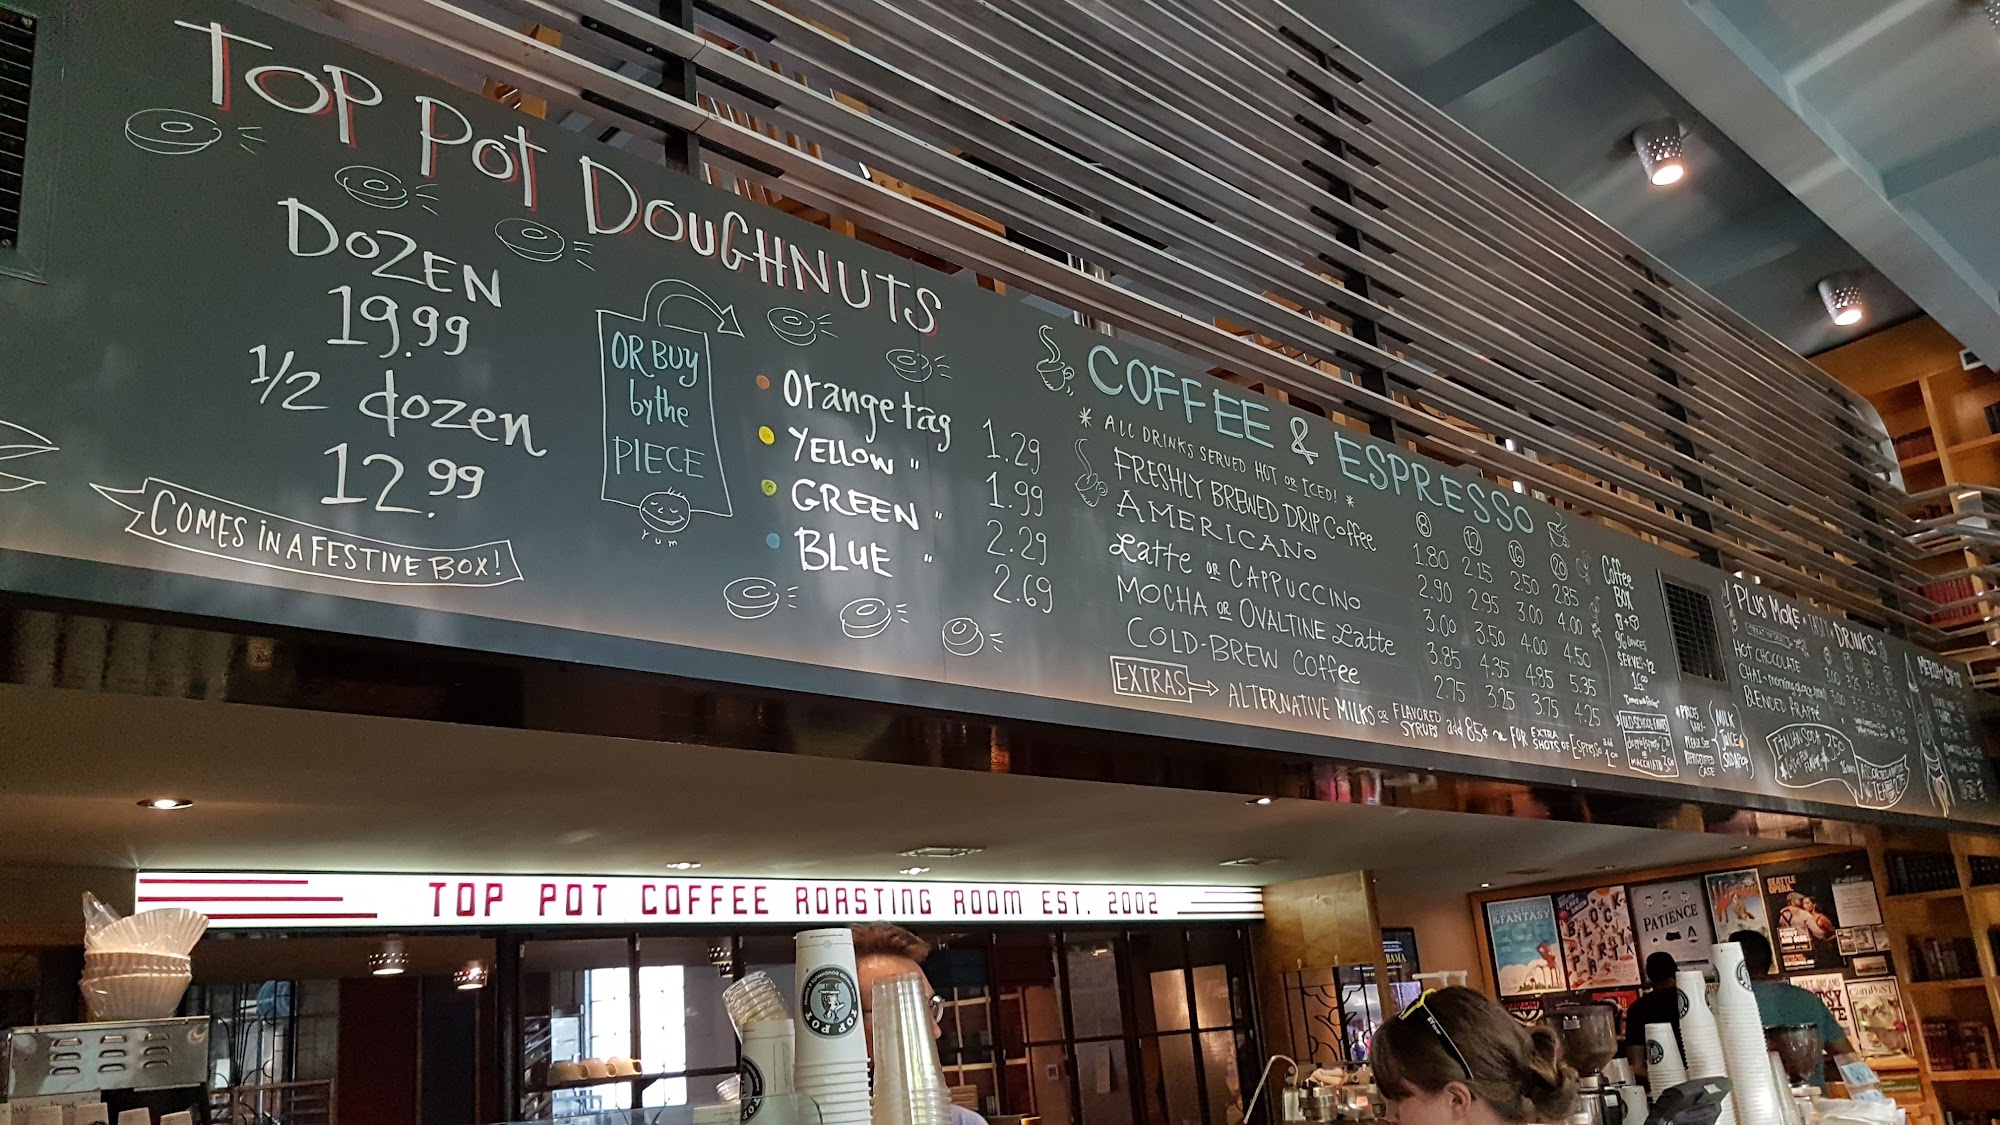 TOP POT DOUGHNUTS
DOZEN
19.99
1/2 dozen
12.99
COMES IN A FESTIVE BOX!
OR BUY
by the
PIECE
YUM
Orange tag 1.29
YELLOW " 1.99
GREEN " 2.29
BLUE " 2.69
COFFEE & ESPRESSO
* ALL DRINKS SERVED HOT OR ICED! *
8 12 16 20
FRESHLY BREWED DRIP COFFEE 1.80 2.15 2.50 2.85
AMERICANO 2.90 2.95 3.00 4.00
Latte OR CAPPUCCINO 3.00 3.50 4.00 4.50
MOCHA OR OVALTINE Latte 3.85 4.35 4.85 5.35
COLD-BREW COFFEE 2.75 3.25 3.75 4.25
EXTRAS ALTERNATIVE MILKS OR FLAVORED SYRUPS add 85¢ FOR EXTRA SHOTS OF Espresso add 1.00
Coffee
BOX
96 OUNCES
SERVES 12
OLD SCHOOL
MACCHIATO
* PRICES
VARY-
PLEASE SEE
REFRIGERATED
CASE
MILK
JUICE
SODA POP
PLUS MORE TASTY DRINKS
HOT CHOCOLATE
CHAI
BLENDED FRAPPÉ
ITALIAN SODA 2.50
TOP POT COFFEE ROASTING ROOM EST. 2002
TOP POT
SCIENCE FICTION
& FANTASY
BLOCK
PARTY
PATIENCE
SEATTLE
OPERA